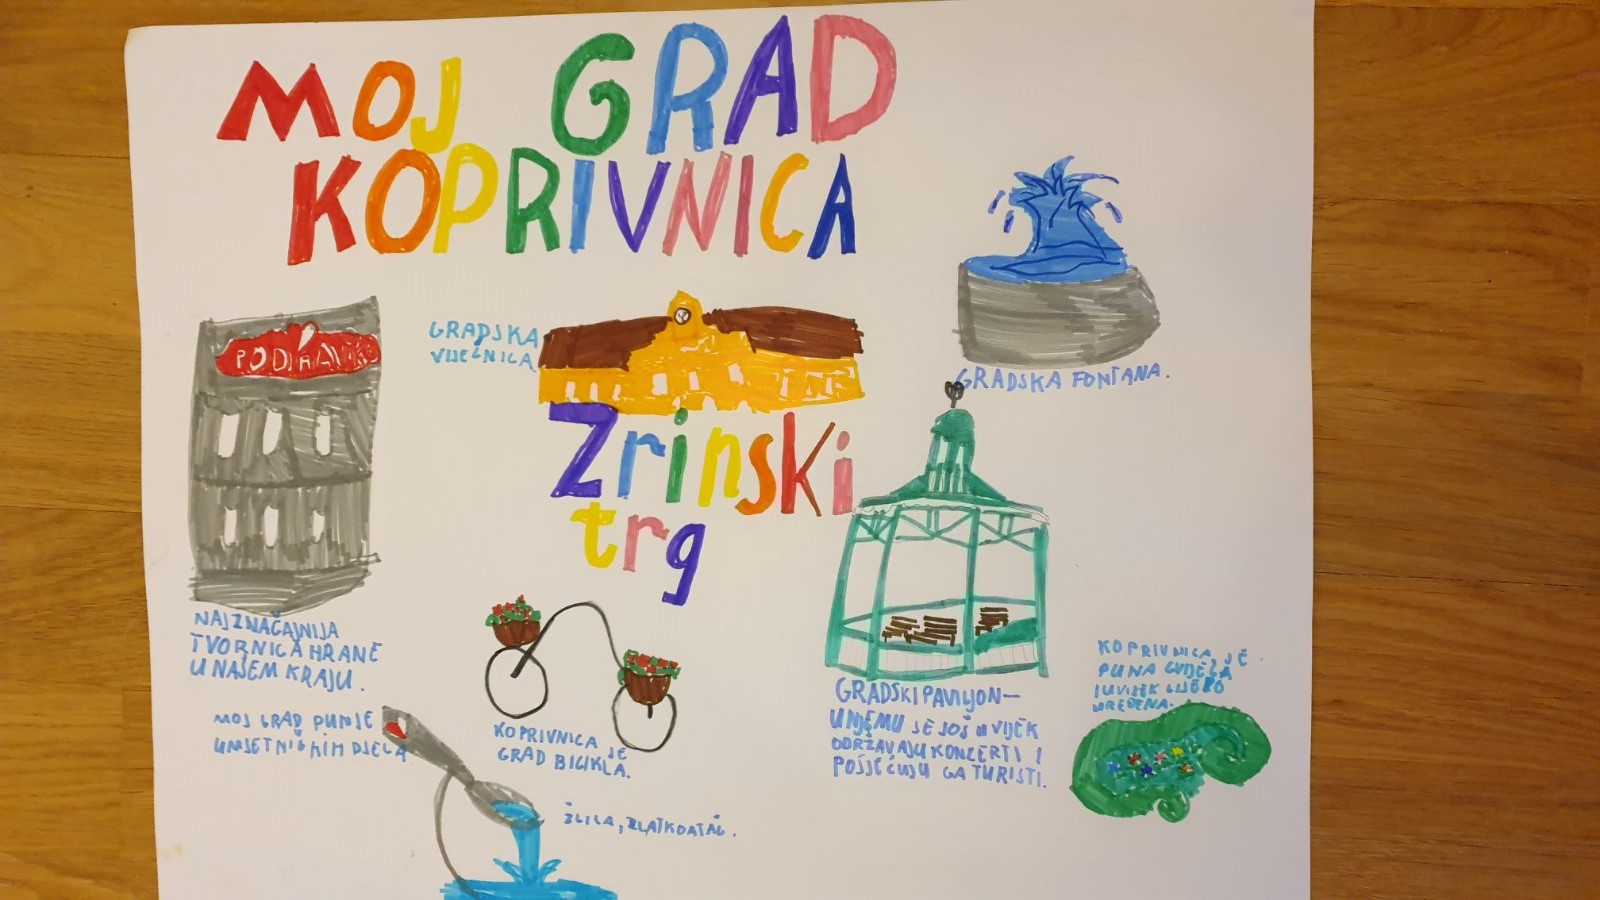 MOJ GRAD
KOPRIVNICA
PODRAVKA
GRADSKA
VIJEĆNICA.
GRADSKA FONTANA.
Zrinski
trg
NAJZNAČAJNIJA
TVORNICA HRANE
U NAŠEM KRAJU.
KOPRIVNICA JE
GRAD BICIKLA.
GRADSKI PAVILJON-
U NJEMU SE JOŠ UVIJEK
ODRŽAVAJU KONCERTI I
POSJEĆUJU GA TURISTI.
KOPRIVNICA JE
PUNA CVIJEĆA
I UVIJEK LIJEPO
UREĐENA.
MOJ GRAD PUN JE
UMJETNIČKIH DJELA.
ŽLICA,